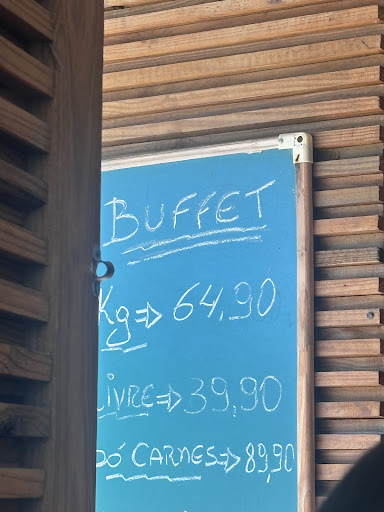 BUFFET
Kg => 64,90
LIVRE => 39,90
SÓ CARNES => 89,90